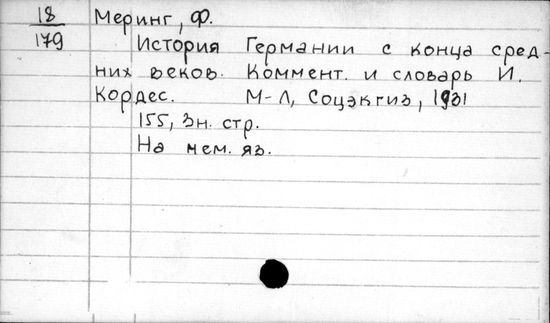 18
179
Меринг, Ф.
История Германии с конца сред-
них веков. Коммент. и словарь И.
Кордес. М-Л, Соцэкгиз, 1931
155, 3н. стр.
На нем. яз.